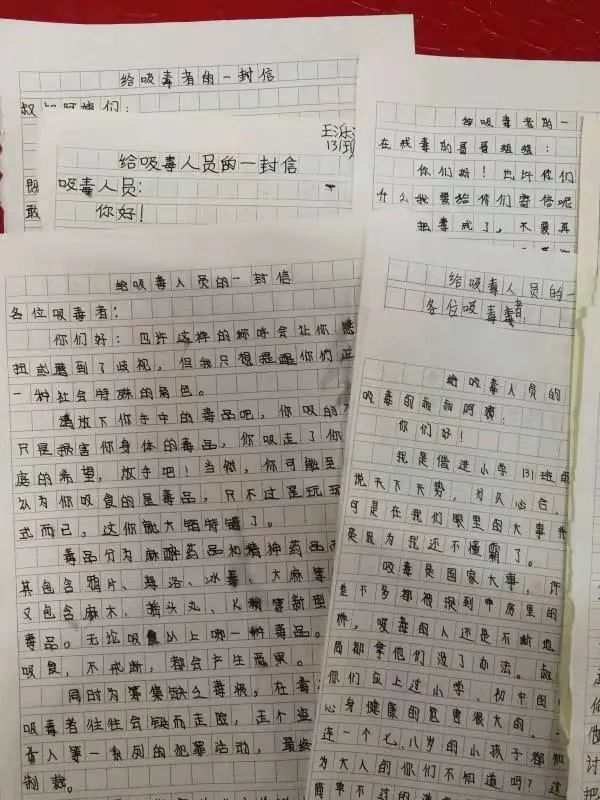 给吸毒者的一封信
叔叔阿姨们：
王泺
131班
给吸毒人员的一封信
吸毒人员：
你好！
既
敢
给吸毒者的一
在戒毒的哥哥姐姐：
你们好！也许你们
什么我要给你们寄信呢
把毒戒了，不要再
给吸毒人员的一封信
各位吸毒者：
你们好：也许这样的称呼会让你感
扭或感到了歧视，但我只想提醒你们正
一种社会特殊的角色。
请放下你手中的毒品吧，你吸的
只是损害你身体的毒品，你吸走了你
庭的希望，放手吧！当然，你可能至
认为你吸食的是毒品，只不过是玩玩
式而已，这你就大错特错了。
毒品分为麻醉药品和精神药品而
其包含鸦片、海洛、冰毒、大麻等
又包含麻木、摇头丸、K粉害新型
毒品。无论吸食以上哪一种毒品。
吸食，不戒断，都会产生恶果。
同时为筹集缺乏毒视，在毒
吸毒者往往会铤而走险，走个盗
杀人等一系列的犯罪活动，最终
制裁。
给吸毒人员的一
各位吸毒者：
给吸毒人员的
吸毒的叔叔阿姨：
你们好！
我是偕进小学131班的
说天下大势，为久必合，
可是在我们眼里的大事
是因为我还不懂霸了。
吸毒是国家大事，许
差不多都被捉到牢房里的
样，吸毒的人还是不断地
局都拿他们没了办法。叔
你们应上过小学、初中的
心身健康的危害很大的。
连一个七、八岁的小孩子都知
为大人的你们不知道吗？这
简单不过的道
讨
把